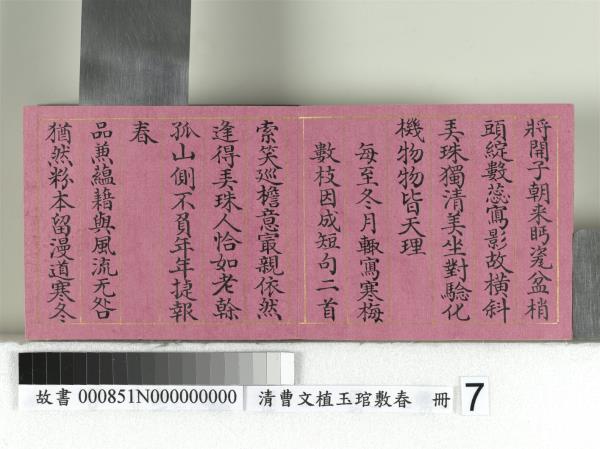 將開子朝来眄瓷盆梢
頭綻數蕊寫影故横斜
弄珠獨清美坐對驗化
機物物皆天理
每至冬月輒寫寒梅
數枝因成短句二首
索笑巡檐意㝡親依然
逢得弄珠人恰如老幹
孤山側不負年年捷報
春
品兼蘊藉與風流无咎
猶然粉本留漫道寒冬
故書 000851N000000000
清曹文植玉琯敷春 冊
7